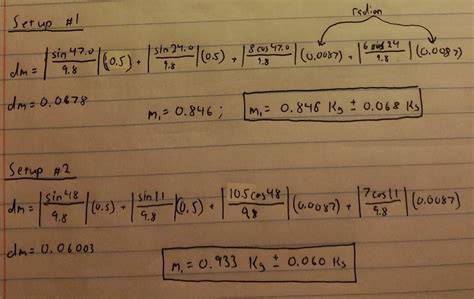 radian
Setup #1
dm = |sin 47.0 / 9.8| (0.5) + |sin 24.0 / 9.8| (0.5) + |8 cos 47.0 / 9.8| (0.0087) + |6 cos 24 / 9.8| (0.0087)
dm = 0.0678
m₁ = 0.846 ; m₁ = 0.846 Kg ± 0.068 Kg
Setup #2
dm = |sin 48 / 9.8| (0.5) + |sin 11 / 9.8| (0.5) + |10.5 cos 48 / 9.8| (0.0087) + |7 cos 11 / 9.8| (0.0087)
dm = 0.06003
m₁ = 0.933 Kg ± 0.060 Kg